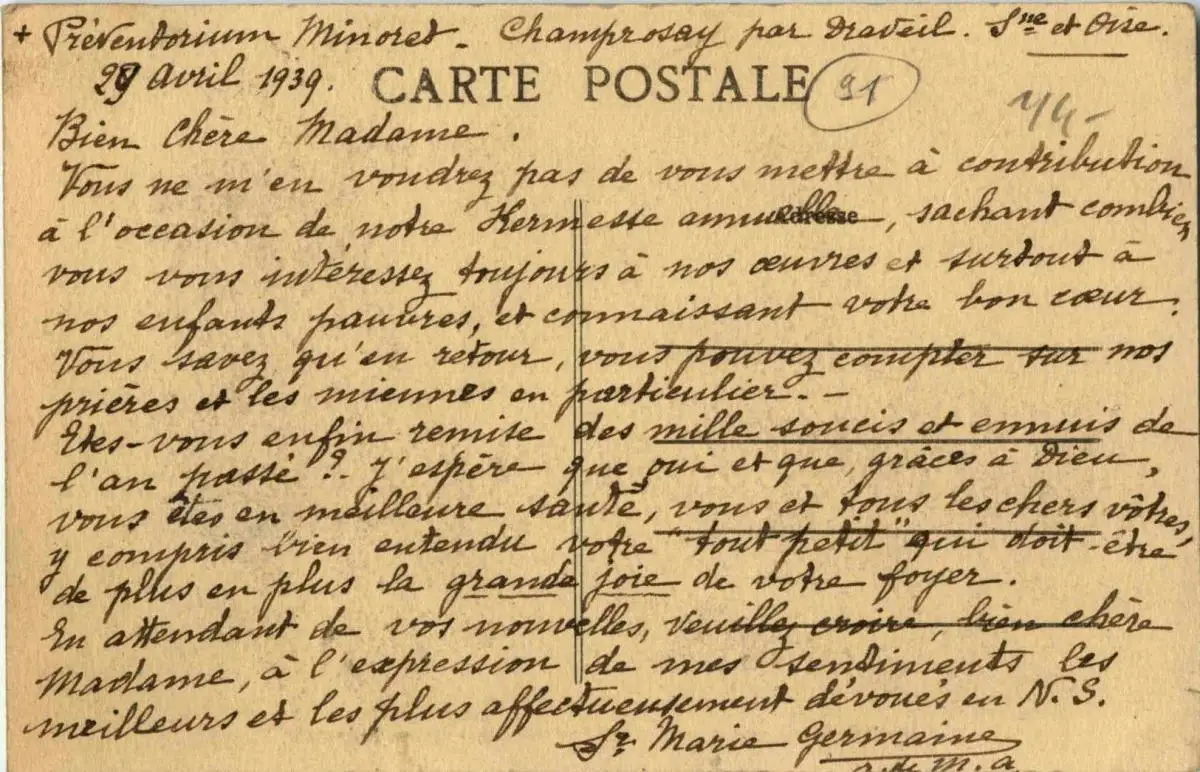 + Préventorium Minoret - Champrosay par Draveil. Sne et Oise.
29 Avril 1939.
CARTE POSTALE
91
44-
Bien Chère Madame.
Vous ne m'en voudrez pas de vous mettre à contribution
à l'occasion de notre Kermesse annuelle, sachant combien
Adresse
vous vous intéressez toujours à nos œuvres et surtout à
nos enfants pauvres, et connaissant votre bon cœur.
Vous savez qu'en retour, vous pouvez compter sur nos
prières et les miennes en particulier. -
Etes-vous enfin remise des mille soucis et ennuis de
l'an passé ? J'espère que oui et que, grâces à Dieu,
vous êtes en meilleure santé, vous et tous les chers vôtres,
y compris bien entendu votre "tout petit" qui doit-être
de plus en plus la grande joie de votre foyer.
En attendant de vos nouvelles, veuillez croire, bien chère
Madame, à l'expression de mes sentiments les
meilleurs et les plus affectueusement dévoués en N.S.
Sr Marie Germaine
r. de m. a.